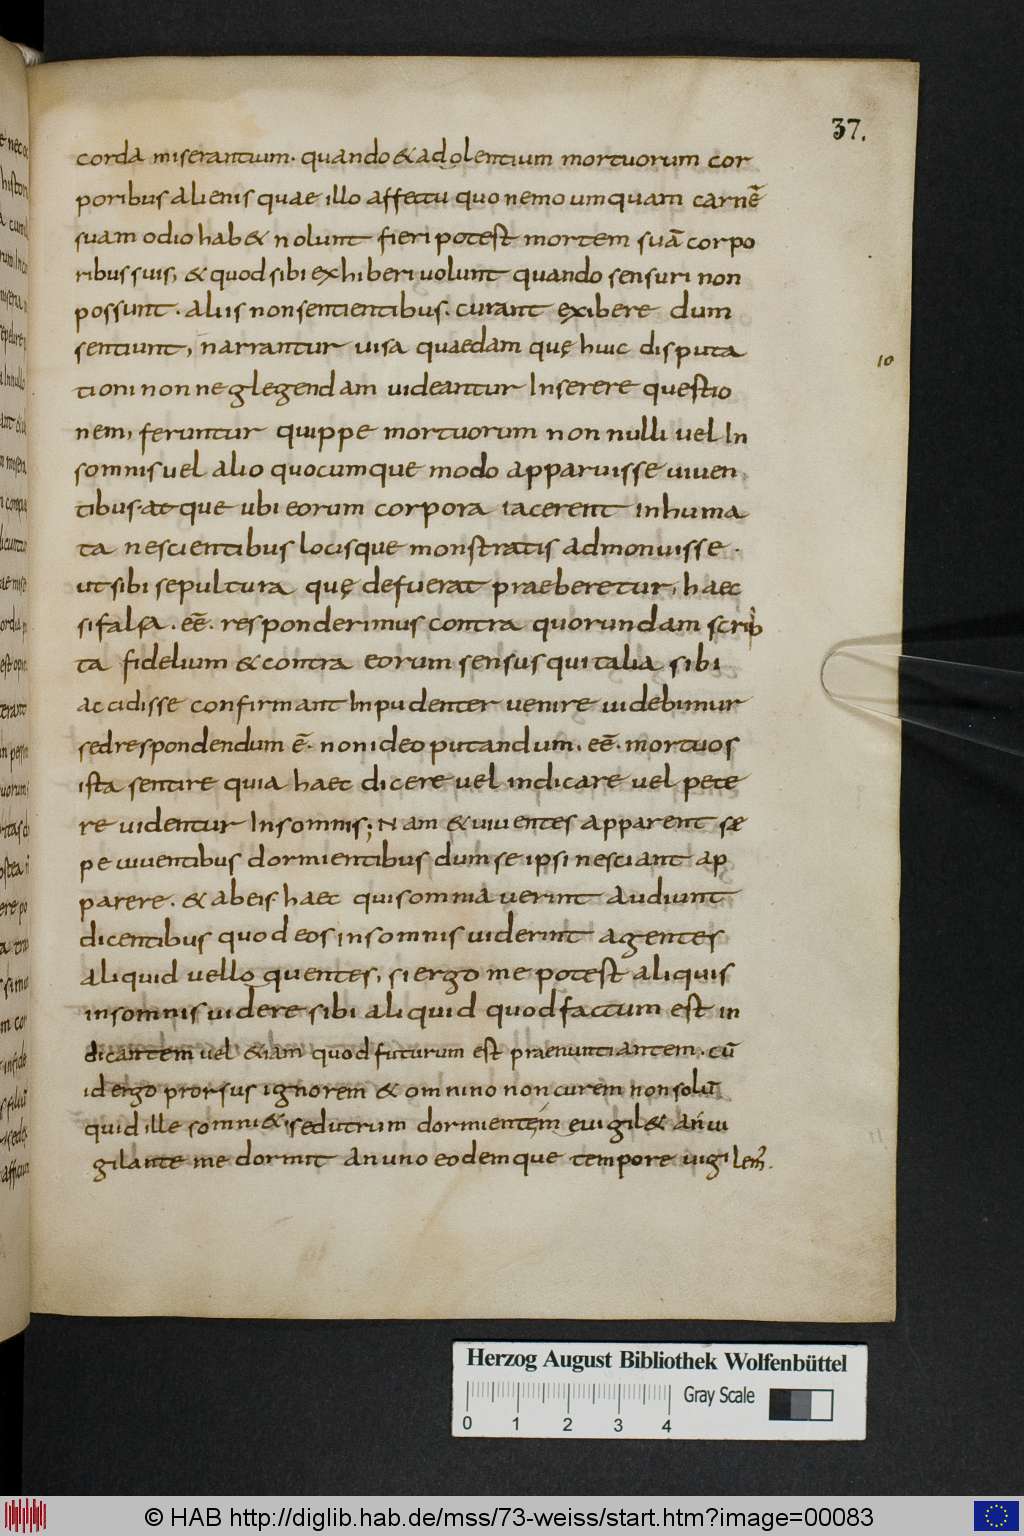 37.
corda miserantium. quando & adolentium mortuorum cor
poribus alienis quae illo affectu quo nemo umquam carnē
suam odio hab& nolunt fieri potest mortem suā corpo
ribus suis, & quod sibi exhiberi uolunt quando sensuri non
possunt. aliis non sentientibus. curant exibere dum
sentiunt, narrantur uisa quaedam quę huic disputa
10
tioni non neglegendam uideantur Inserere questio
nem, feruntur quippe mortuorum non nulli uel In
somnis uel alio quocumque modo apparuisse uiuen
tibus. atque ubi eorum corpora iacerent inhuma
ta nescientibus locisque monstratis admonuisse.
ut sibi sepultura quę defuerat praeberetur, haec
si falsa. eē. responderimus contra quorundam scrip
ta fidelium & contra eorum sensus qui talia sibi
accidisse confirmant Inpudenter uenire uidebimur
sed respondendum ē. non ideo putandum. eē. mortuos
ista sentire quia haec dicere uel indicare uel pete
re uidentur In somnis; Nam & uiuentes apparent sę
pe uiuentibus dormientibus dum se ipsi nesciant ap
parere. & ab eis haec qui somnia uerint audiunt
dicentibus quod eos in somnis uiderint agentes
aliquid uel loquentes, si ergo me potest aliquis
in somnis uidere sibi aliquid quod factum est in
dicantem uel &iam quod futurum est praenuntiantem. cū
id ergo prorsus ignorem & omnino non curem non solū
quid ille somni& sed utrum dormientem euigil& an ui
gilante me dormit an uno eodemque tempore uigilem.
Herzog August Bibliothek Wolfenbüttel
Gray Scale
0 1 2 3 4
© HAB http://diglib.hab.de/mss/73-weiss/start.htm?image=00083